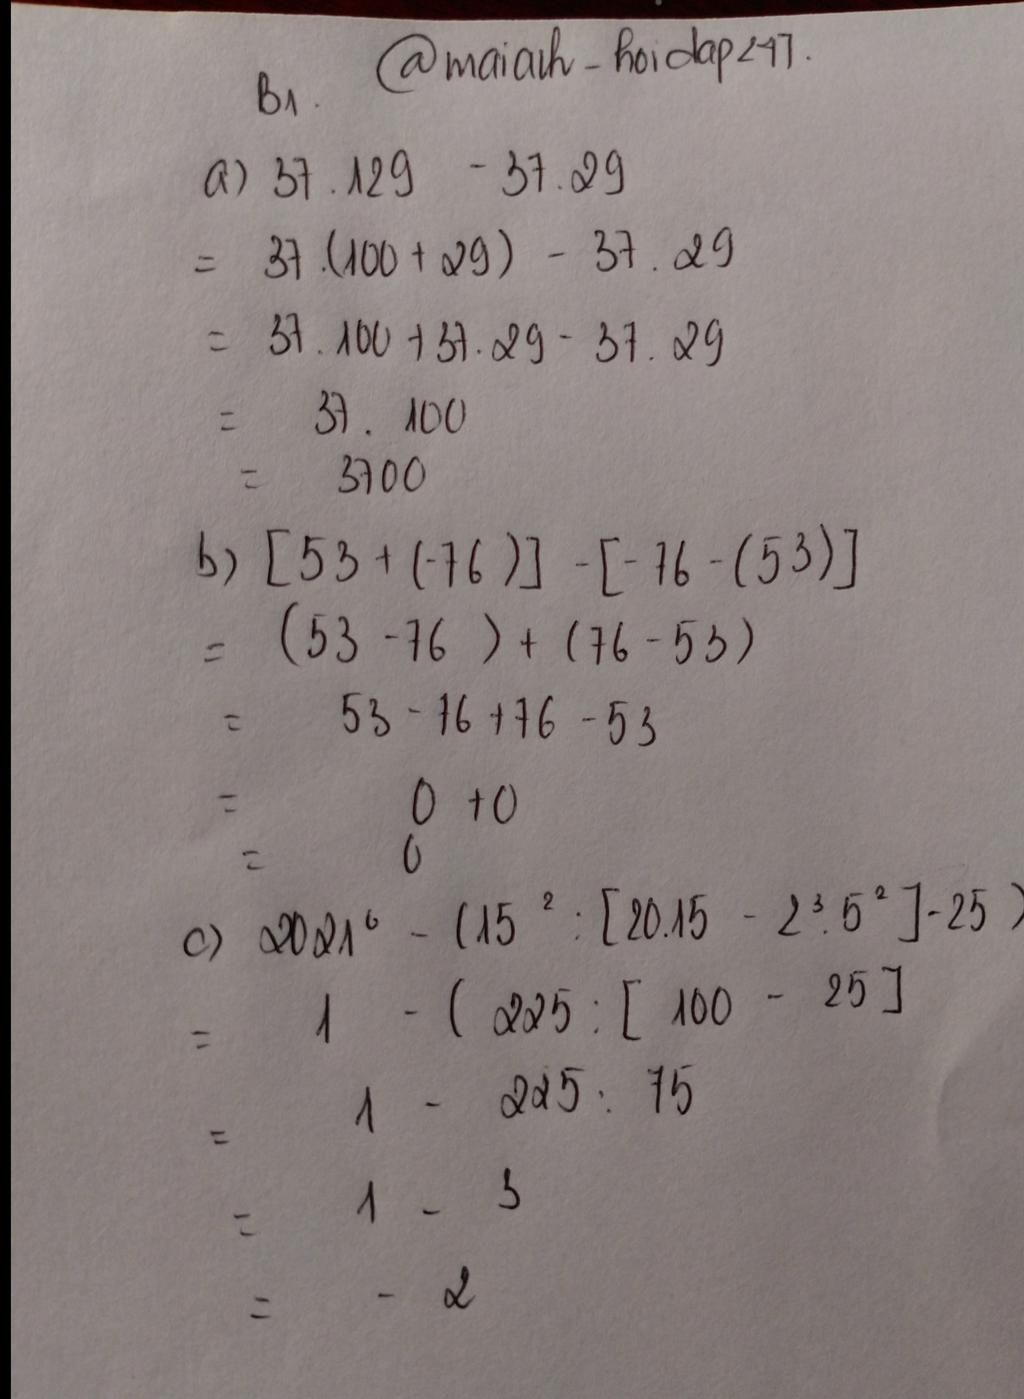 @maianh_hoidap247.
B1.
a) 37.129 - 37.29
= 37.(100 + 29) - 37.29
= 37.100 + 37.29 - 37.29
= 37.100
= 3700
b) [53 + (-76)] - [-76 - (53)]
= (53 - 76) + (76 - 53)
= 53 - 76 + 76 - 53
= 0 + 0
= 0
c) 2021⁰ - (15² : [20.15 - 2³.5²] - 25)
= 1 - (225 : [100 - 25]
= 1 - 225 : 75
= 1 - 3
= - 2